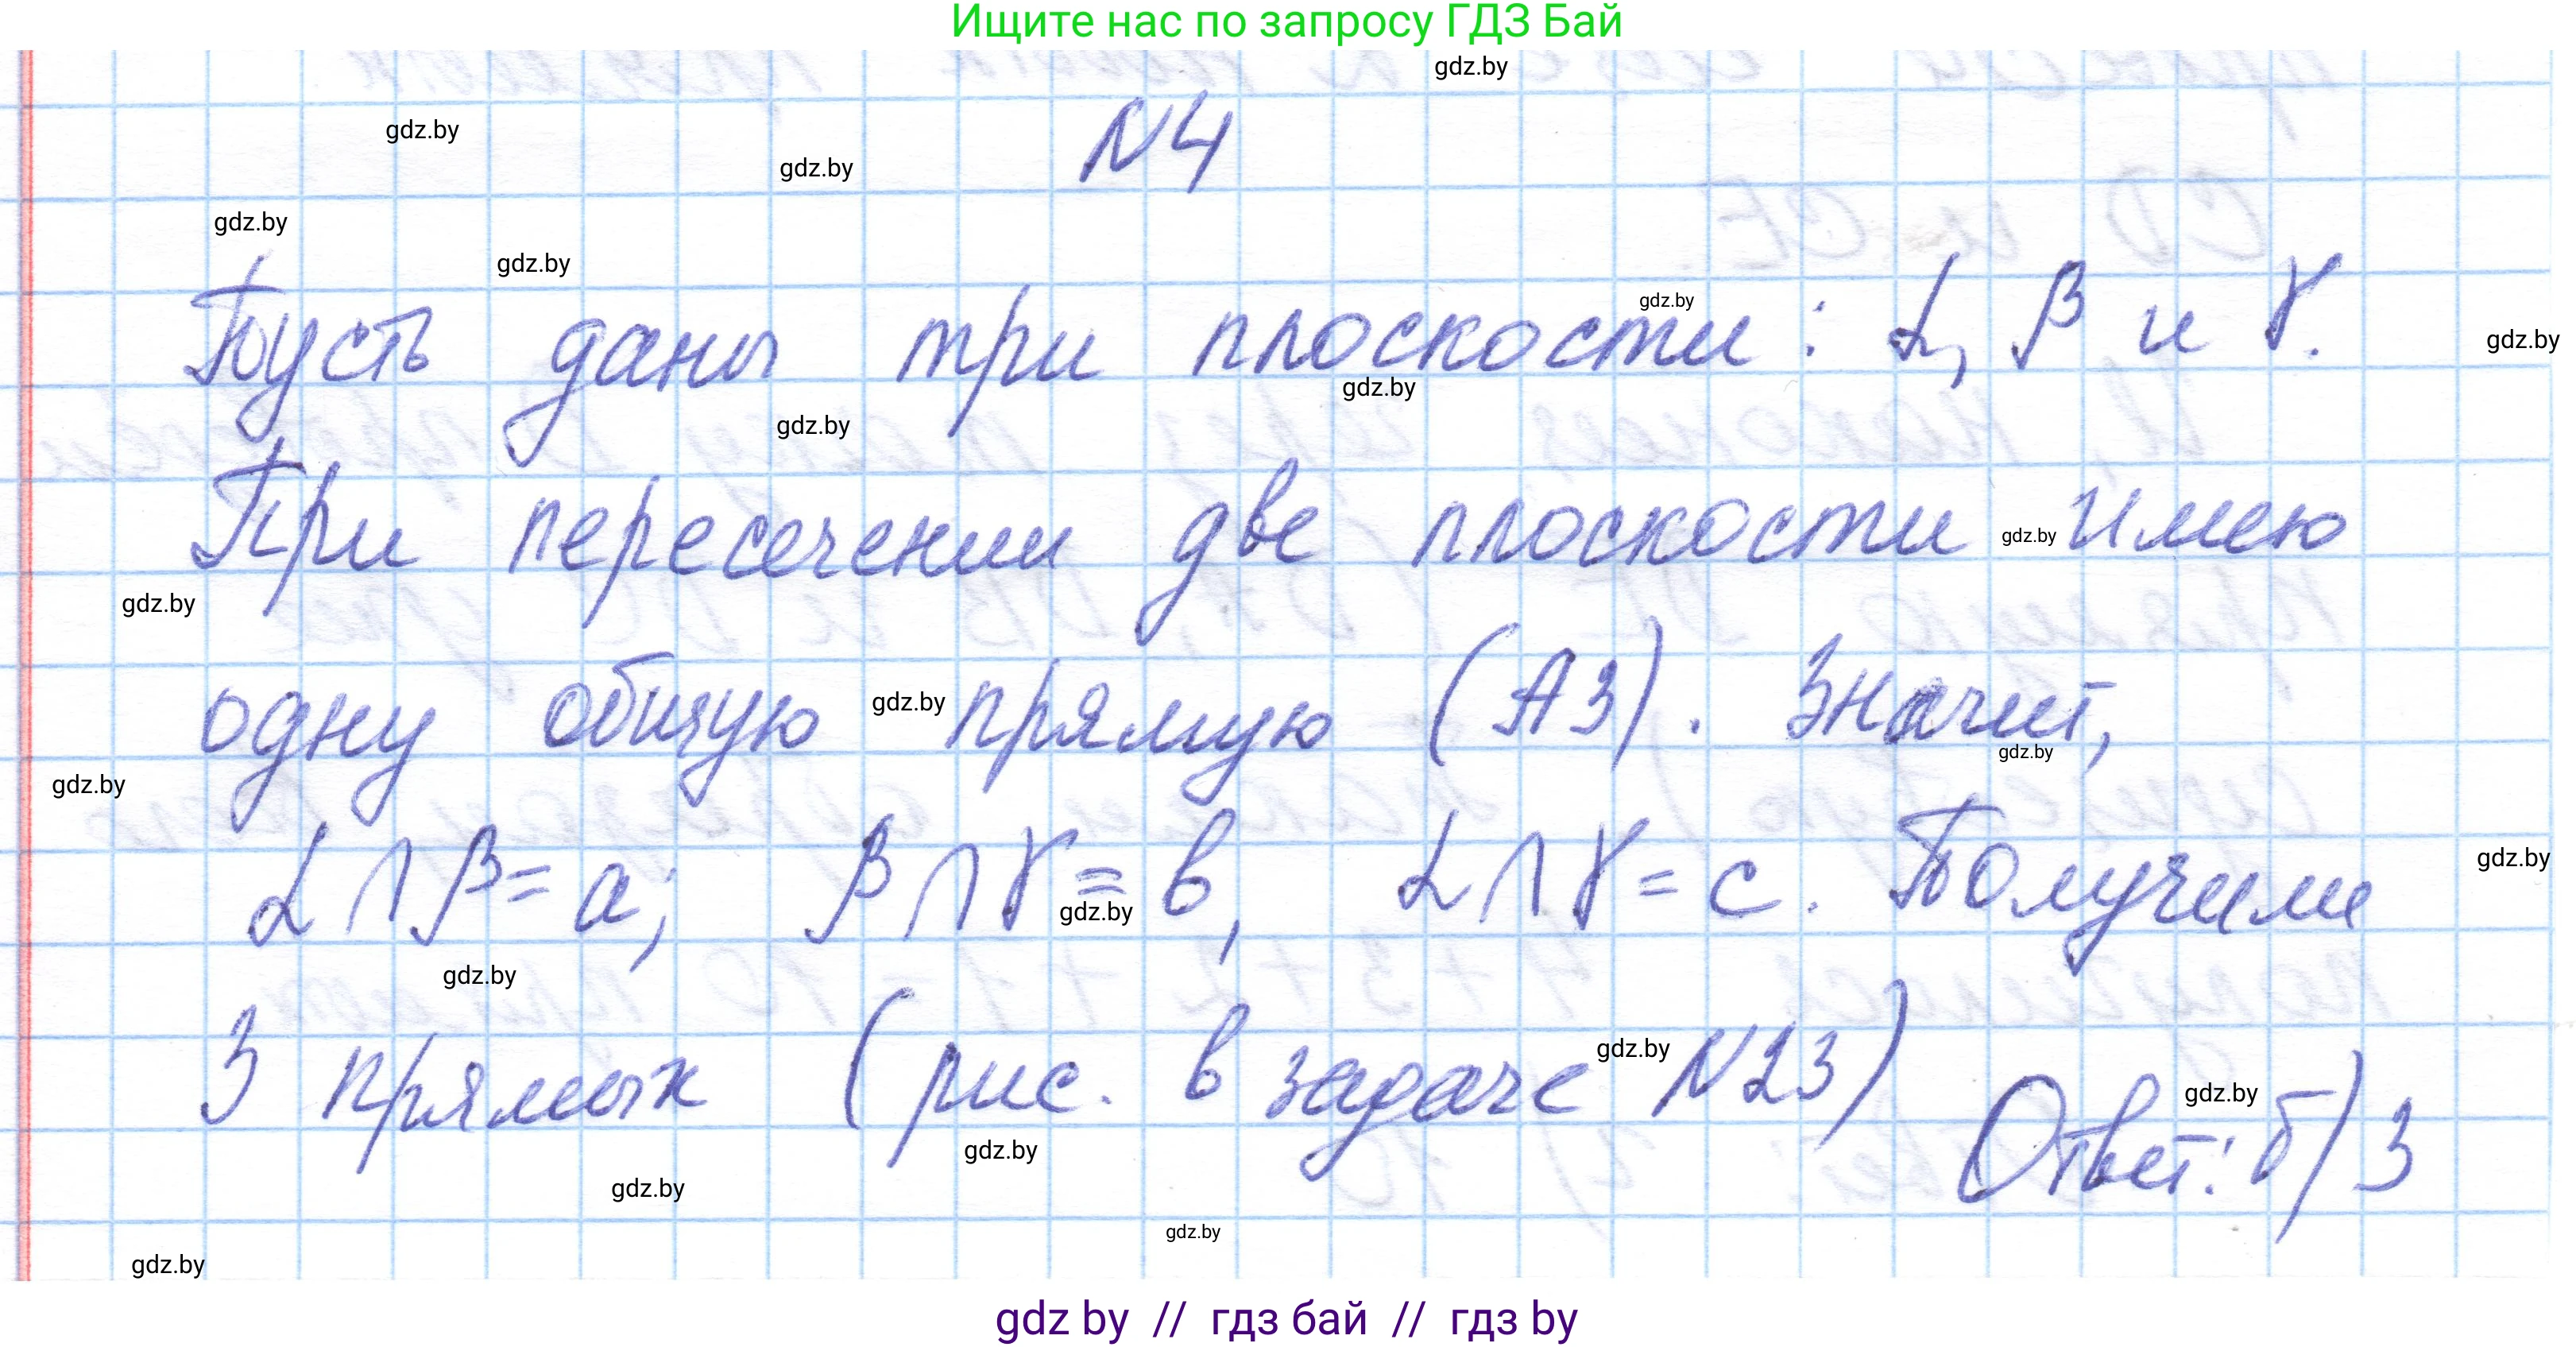 Ищите нас по запросу ГДЗ Бай
gdz.by
№4
gdz.by
gdz.by
gdz.by
gdz.by
Пусть даны три плоскости: α, β и γ.
gdz.by
gdz.by
gdz.by
gdz.by
При пересечении две плоскости имею
gdz.by
gdz.by
одну общую прямую (А3). Значит,
gdz.by
gdz.by
gdz.by
α∩β=a; β∩γ=в, α∩γ=c. Получили
gdz.by
gdz.by
gdz.by
3 прямых (рис. в задаче №23)
gdz.by
Ответ: б) 3
gdz.by
gdz.by
gdz.by
gdz.by
gdz.by
gdz by // гдз бай // гдз by